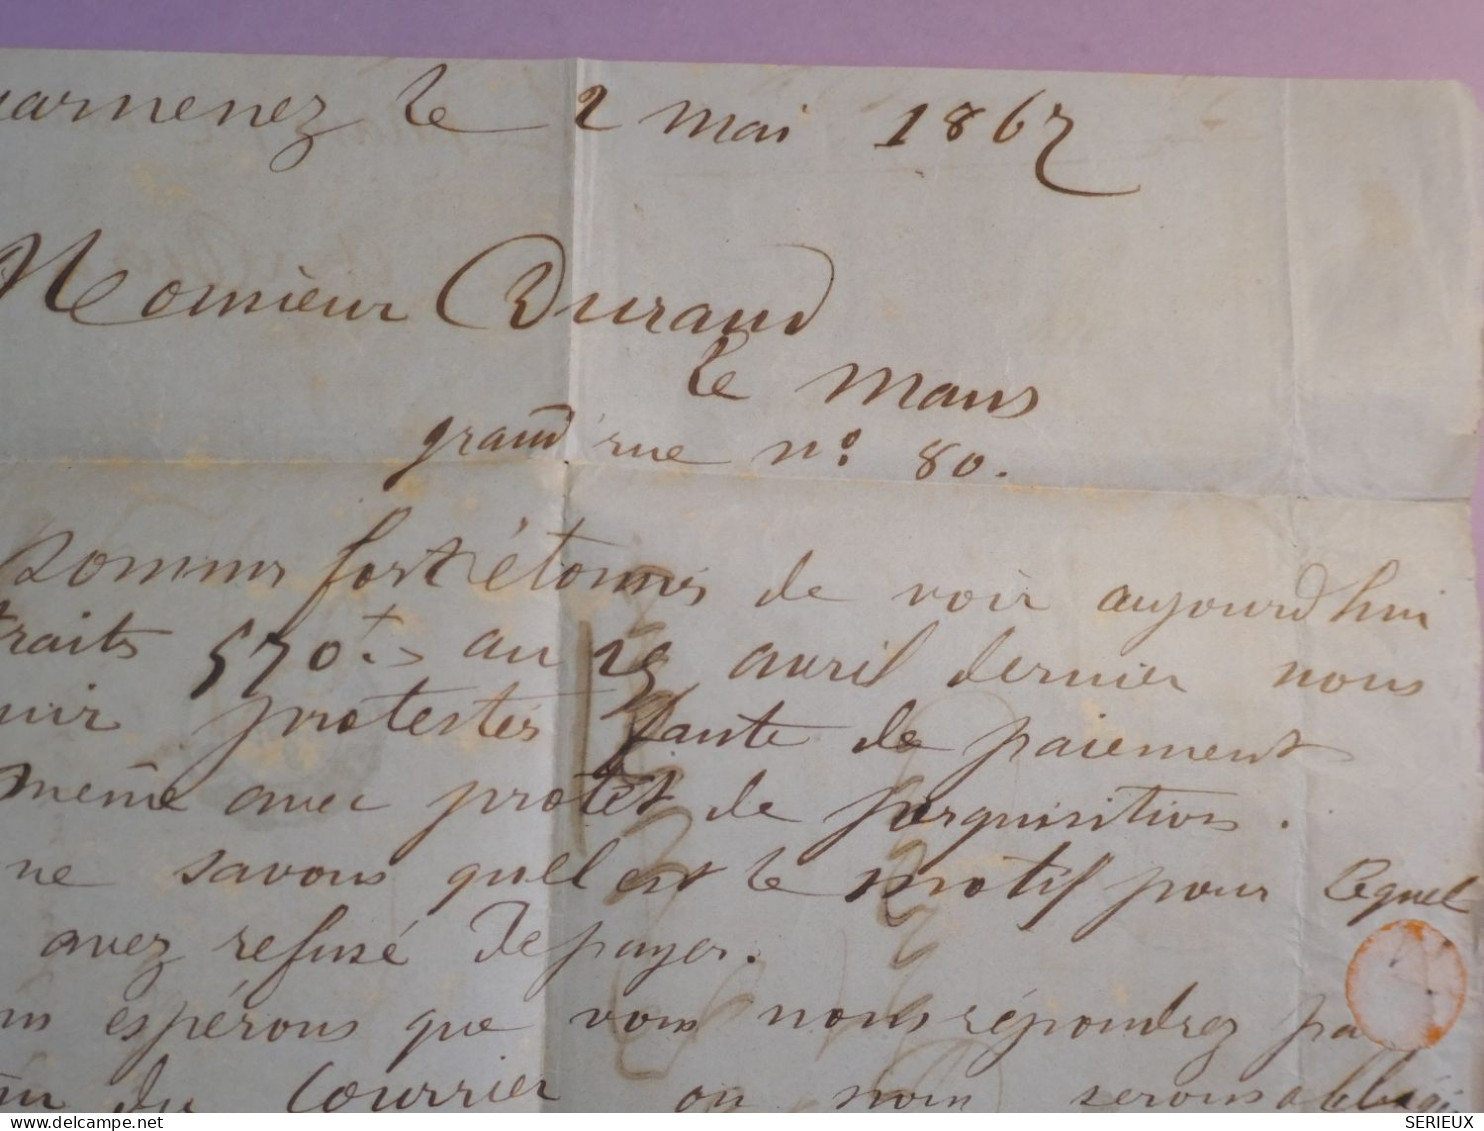 uarmenez le 2 mai 1867
Monsieur Durand
le Mans
grand rue n° 80.
sommes fort étonnés de voir aujourd'hui
traits 570 f. au 29 avril dernier nous
nir protestés faute de paiement
même avec protêt de perquisition.
ne savons quel est le motif pour lequel
avez refusé de payer.
espérons que vous nous répondrez pa
du Courrier ou nous serons
SERIEUX